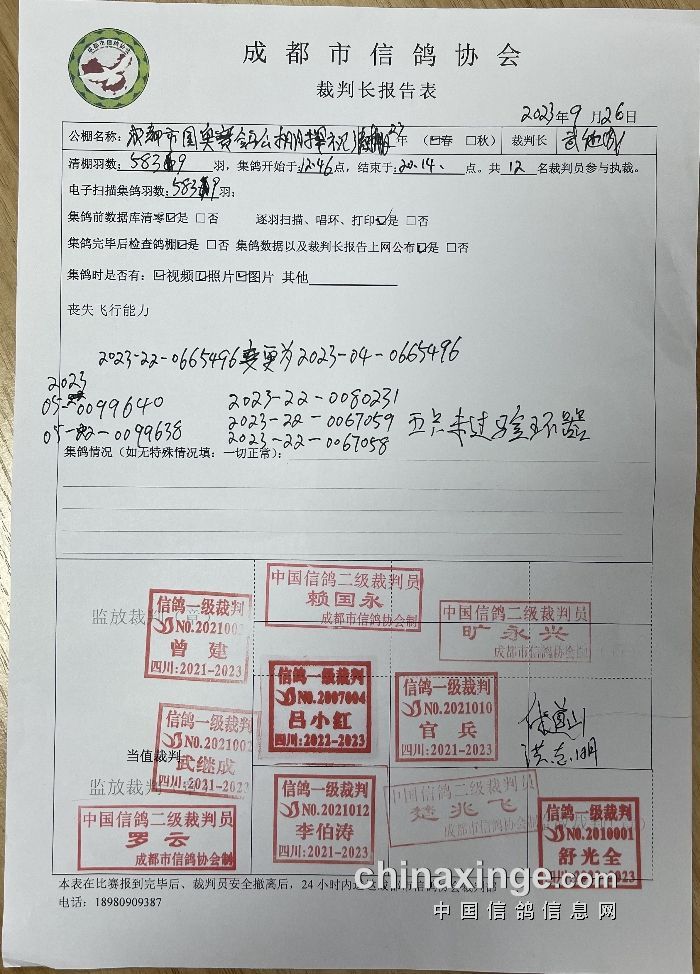 成都市信鸽协会
裁判长报告表
2023年9月26日
公棚名称: 成都市国奥赛会公棚 23年 (☑春 □秋) 裁判长 武继成
清棚羽数: 5839 羽, 集鸽开始于: 12.46点, 结束于: 20.14. 点。共 12 名裁判员参与执裁。
电子扫描集鸽羽数: 5839羽;
集鸽前数据库清零☑是 □否 逐羽扫描、唱环、打印☑是 □否
集鸽完毕后检查鸽棚☑是 □否 集鸽数据以及裁判长报告上网公布☑是 □否
集鸽时是否有: ☑视频☑照片☑图片 其他
丧失飞行能力
2023-22-0665496变更为2023-04-0665496
2023
05-0099640 2023-22-0080231
05-22-0099638 2023-22-0067059 五只未过验环器
2023-22-0067058
集鸽情况(如无特殊情况填:一切正常):
中国信鸽二级裁判员
赖国永
成都市信鸽协会制
信鸽一级裁判
NO.202100
曾建
四川:2021-2023
监放裁判
中国信鸽二级裁判员
旷永兴
成都市信鸽协会制
信鸽一级裁判
NO.2007004
吕小红
四川:2021-2023
信鸽一级裁判
NO.2021010
官兵
四川:2021-2023
信鸽一级裁判
NO.202100
武继成
四川:2021-2023
当值裁判
洪志明
监放裁判
中国信鸽二级裁判员
罗云
成都市信鸽协会制
信鸽一级裁判
NO.2021012
李伯涛
四川:2021-2023
中国信鸽二级裁判员
楚兆飞
成都市信鸽协会制
信鸽一级裁判
NO.2010001
舒光全
四川:2021-2023
本表在比赛报到完毕后、裁判员安全撤离后, 24小时内
电话: 18980909387
chinaxinge.com
中国信鸽信息网